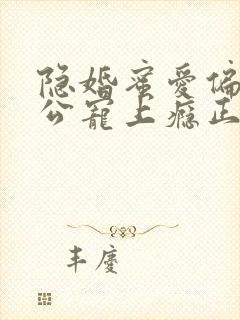 隐婚蜜爱偏
公宠上瘾正
丰庆